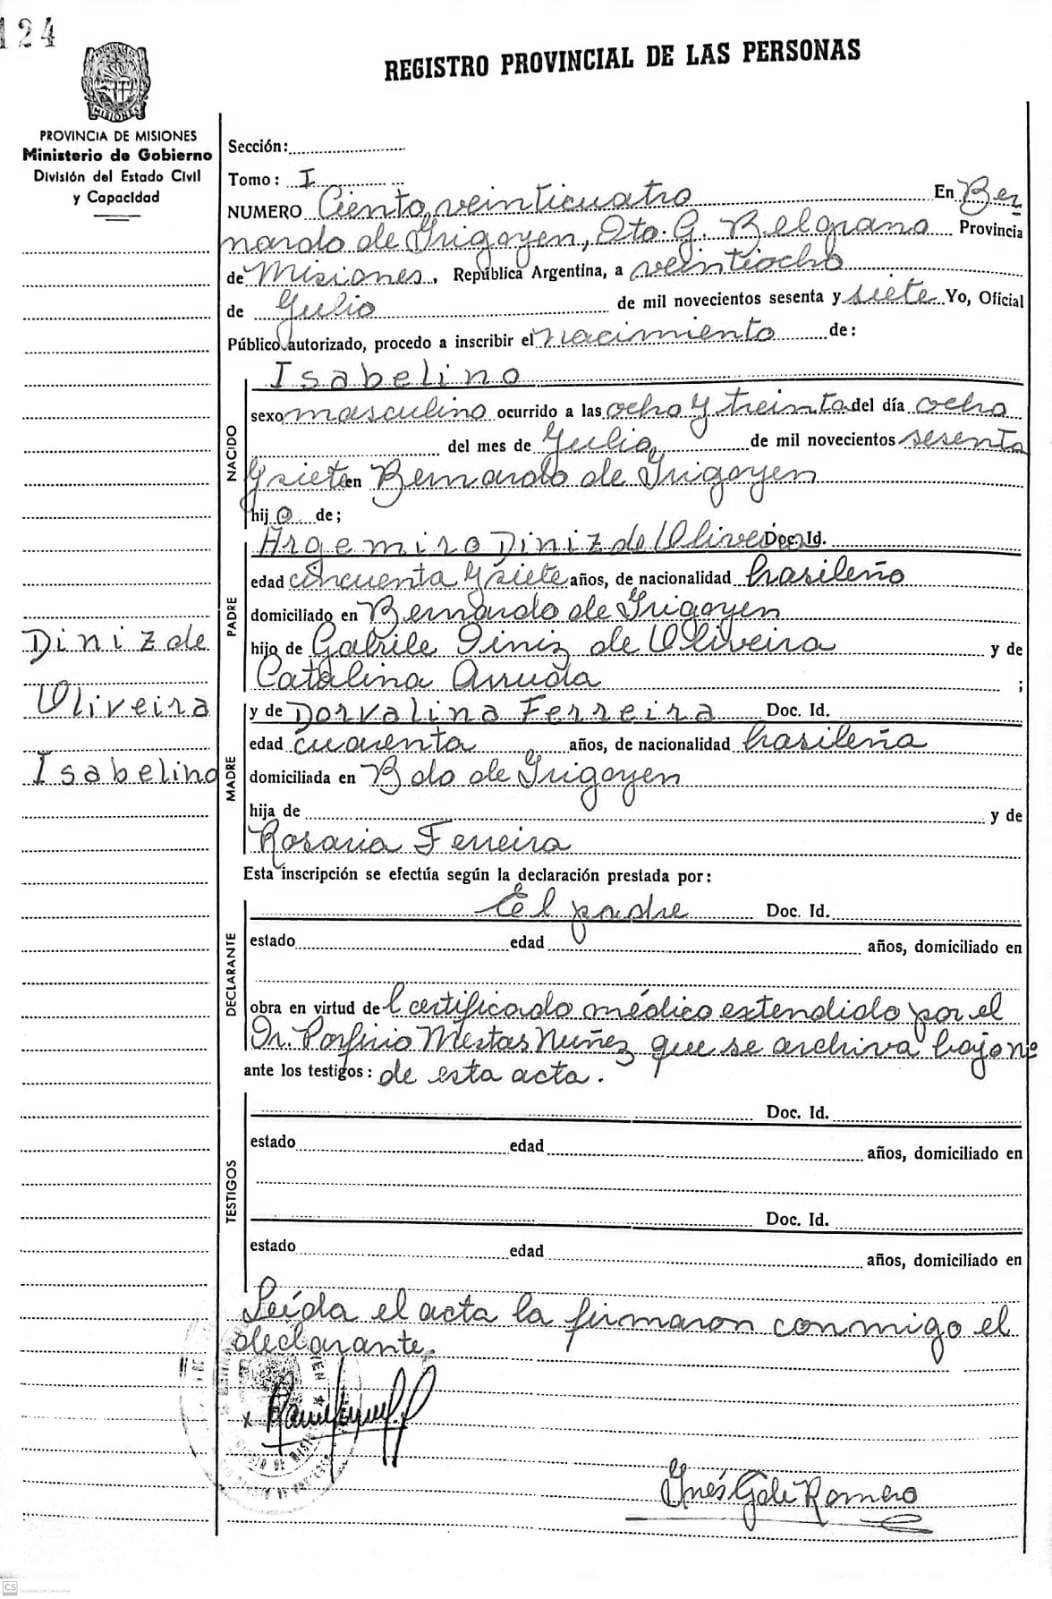 124
REGISTRO PROVINCIAL DE LAS PERSONAS
MISIONES
PROVINCIA DE MISIONES
Ministerio de Gobierno
División del Estado Civil
y Capacidad
Sección:
Tomo: I
NUMERO Ciento veinticuatro En Ber
nardo de Irigoyen, Dto. G. Belgrano Provincia
de Misiones, República Argentina, a veintiocho
de Julio de mil novecientos sesenta y siete Yo, Oficial
Público autorizado, procedo a inscribir el nacimiento de:
Isabelino
NACIDO
sexo masculino ocurrido a las ocho y treinta del día ocho
del mes de Julio de mil novecientos sesenta
y siete en Bernardo de Irigoyen
hijo de;
Argemiro Diniz de Oliveira Doc. Id.
PADRE
edad cincuenta y siete años, de nacionalidad brasileño
domiciliado en Bernardo de Irigoyen
hijo de Gabrile Diniz de Oliveira y de
Catalina Arruda ;
Diniz de
Oliveira
Isabelino
y de Dorvalina Ferreira Doc. Id.
MADRE
edad cuarenta años, de nacionalidad brasileña
domiciliada en Bdo de Irigoyen
hija de y de
Rosaria Ferreira
Esta inscripción se efectúa según la declaración prestada por:
El padre Doc. Id.
DECLARANTE
estado edad años, domiciliado en
obra en virtud del certificado médico extendido por el
Dr. Porfirio Mestas Nuñez que se archiva bajo nº
ante los testigos: de esta acta.
Doc. Id.
TESTIGOS
estado edad años, domiciliado en
Doc. Id.
estado edad años, domiciliado en
Leída el acta la firmaron conmigo el
declarante.
x
Inés Gali Romero
CS